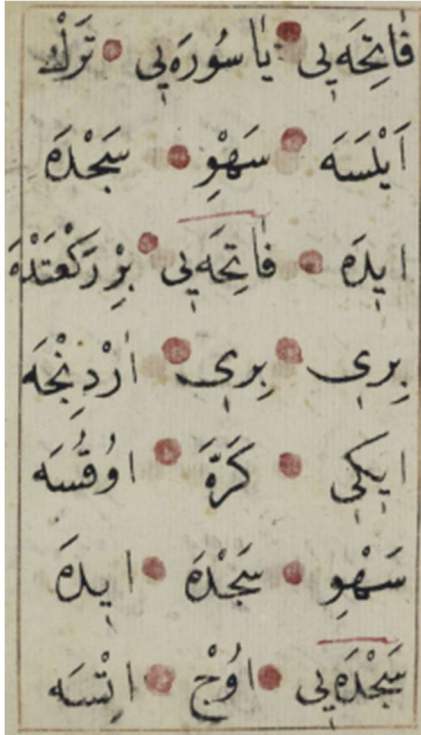 فَاتِحَه‌يِي يَا سُورَه‌يِي تَرْكْ
اَيْلَسَه سَهْوِ سَجْدَه
ايدَه فَاتِحَه‌يِي بِرْ رَكْعَتْدَه
بِرِي بِرِي اَرْدِنْجَه
ايكِي كَرَّه اوُقُسَه
سَهْوِ سَجْدَه ايدَه
سَجْدَه‌يِي اوُچْ اِتْسَه